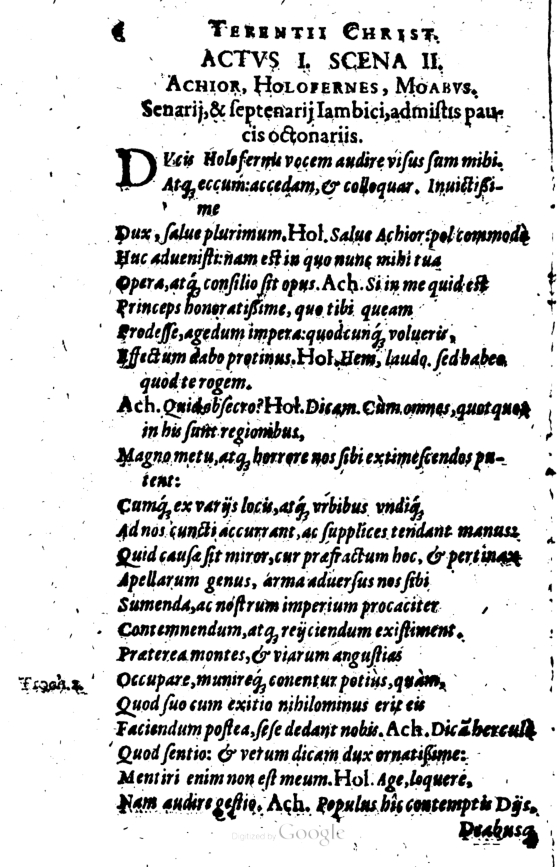 TERENTII CHRIST.
ACTVS I. SCENA II.
ACHIOR, HOLOFERNES, MOABVS.
Senarij, & septenarij Iambici, admistis pau-
cis octonariis.
DVcis Holofernis vocem audire visus sum mihi.
Atq; eccum: accedam, & colloquar. Inuictißi-
me
Dux, salue plurimum. Hol. Salue Achior: pol commodè
Huc aduenisti: nam est in quo nunc mihi tua
Opera, atq́; consilio sit opus. Ach. Si in me quid est
Princeps honoratißime, quo tibi queam
Prodesse, agedum impera: quodcunq́; volueris,
Effectum dabo protinus. Hol. Hem, laudo. sed habeo
quod te rogem.
Ach. Quid obsecro? Hol. Dicam. Cùm omnes, quotquot
in his sunt regionibus,
Magno metu, atq́; horrore nos sibi extimescendos pu-
tent:
Cumq́; ex varijs locis, atq́; vrbibus vndiq́;
Ad nos cuncti accurrant, ac supplices tendant manus:
Quid causæ sit miror, cur præfractum hoc, & pertinax
Apellarum genus, arma aduersus nos sibi
Sumenda, ac nostrum imperium procaciter
Contemnendum, atq́; reijciendum existiment.
Præterea montes, & viarum angustias
Occupare, munireq́; conentur potiùs, quàm,
Quod suo cum exitio nihilominus erit eis
Faciendum postea, sese dedant nobis. Ach. Dicā herculè
Quod sentio: & verum dicam dux ornatißime:
Mentiri enim non est meum. Hol. Age, loquere,
Nam audire gestio. Ach. Populus hic contemptis Dijs,
Deabusq;
Digitized by Google